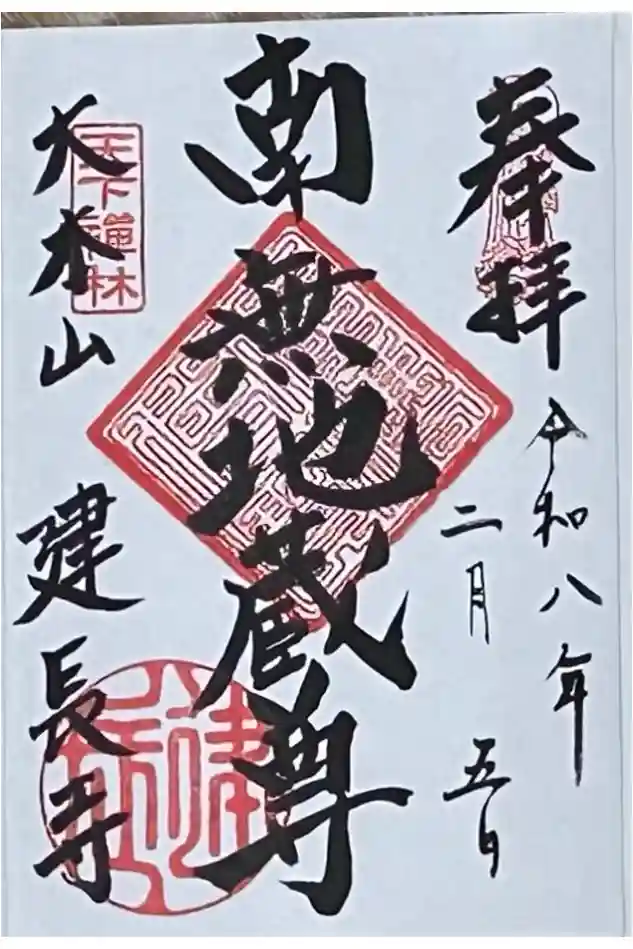 奉拝
令和八年
二月 五日
南無地蔵尊
天下禅林
大本山 建長寺